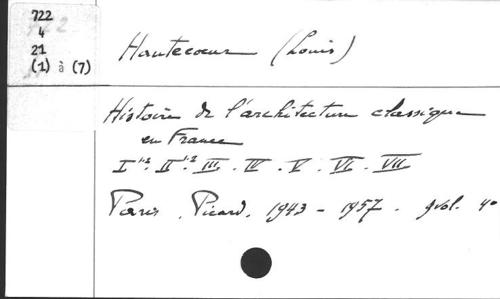 722
4
21
(1) à (7)
Hautecoeur (Louis)
Histoire de l'architecture classique
en France
I¹·². II¹·². III. IV. V. VI. VII
Paris. Picard. 1943 - 1957. 9 vol. 4°